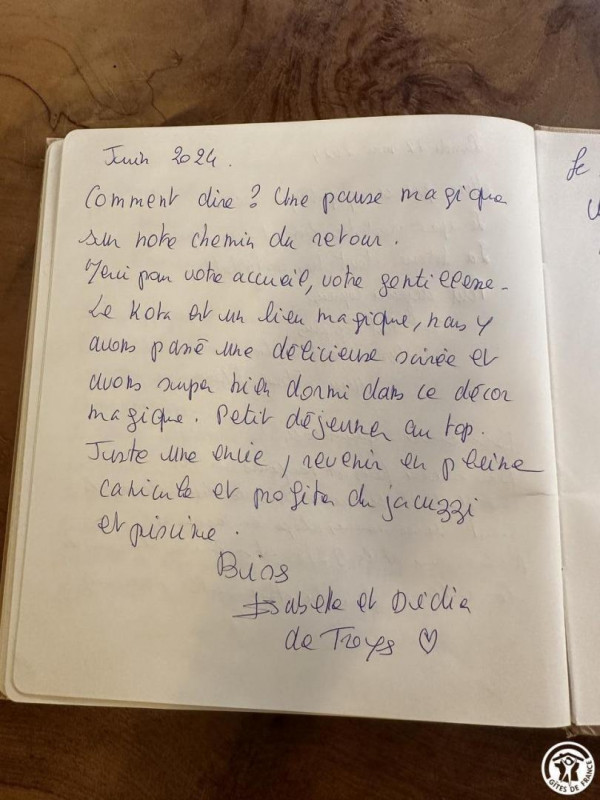 Juin 2024.
Comment dire ? Une pause magique
sur notre chemin du retour.
Merci pour votre accueil, votre gentillesse.
Le Kota est un lieu magique, nous y
avons passé une délicieuse soirée et
avons super bien dormi dans ce décor
magique. Petit déjeuner au top.
Juste une envie, revenir en pleine
canicule et profiter du jacuzzi
et piscine.
Bises
Isabelle et
de Troyes ♡
GÎTES DE FRANCE